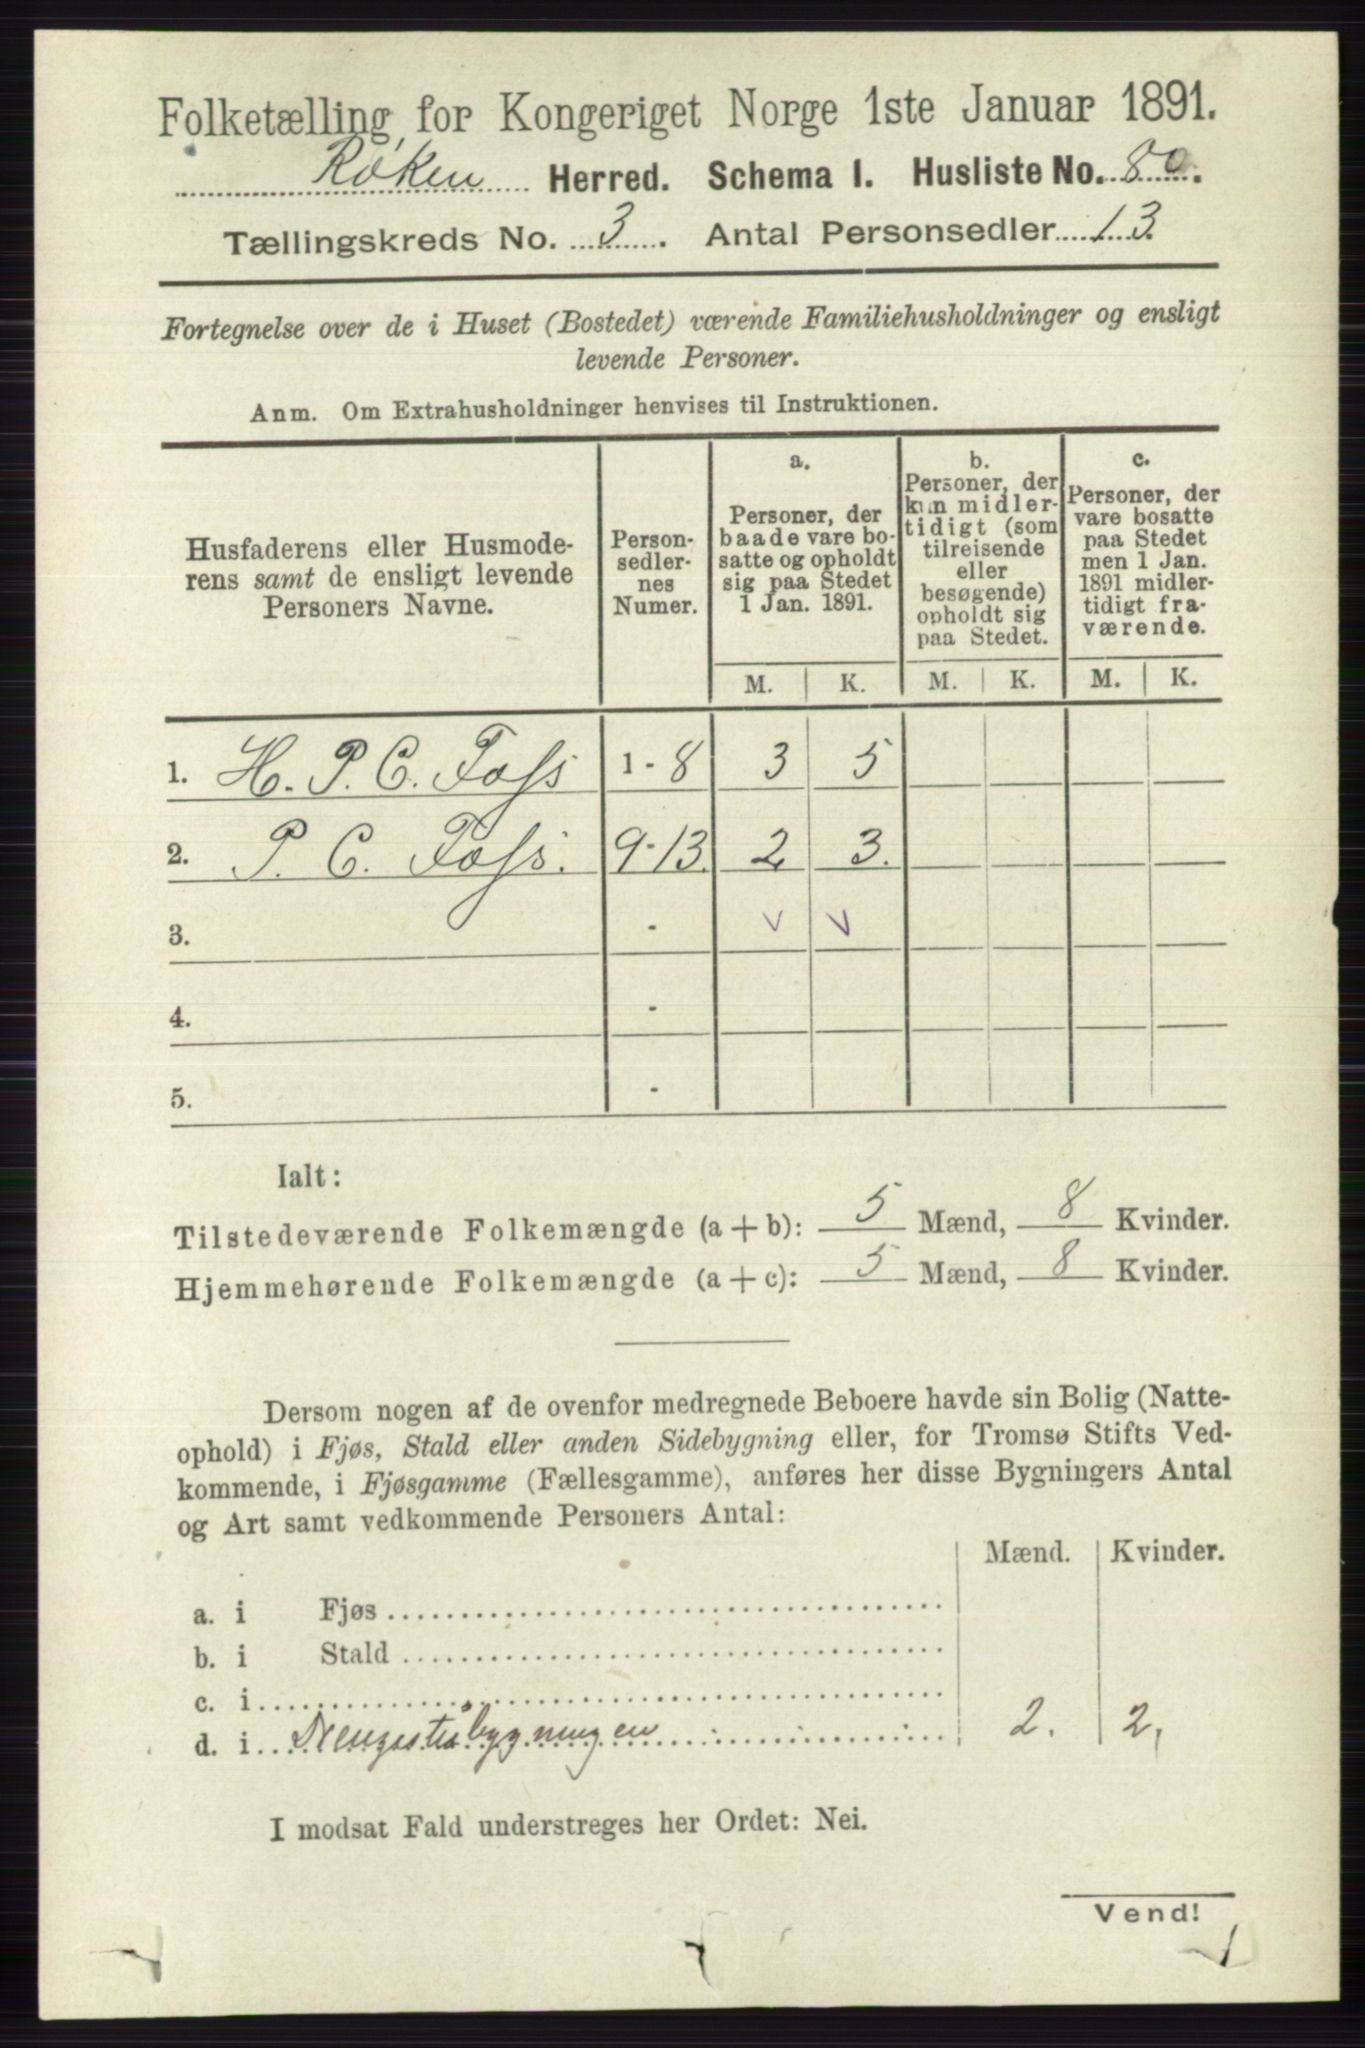 Folketælling for Kongeriget Norge 1ste Januar 1891.
Røken Herred. Schema I. Husliste No. 80.
Tællingskreds No. 3. Antal Personsedler 13.
Fortegnelse over de i Huset (Bostedet) værende Familiehusholdninger og ensligt
levende Personer.
Anm. Om Extrahusholdninger henvises til Instruktionen.
Husfaderens eller Husmode-
rens samt de ensligt levende
Personers Navne.
Person-
sedler-
nes
Numer.
a.
Personer, der
baade vare bo-
satte og opholdt
sig paa Stedet
1 Jan. 1891.
b.
Personer, der
kun midler-
tidigt (som
tilreisende
eller
besøgende)
opholdt sig
paa Stedet.
c.
Personer, der
vare bosatte
paa Stedet
men 1 Jan.
1891 midler-
tidigt fra-
værende.
M. K. M. K. M. K.
1. H. P. C. Foss 1 - 8 3 5
2. P. C. Foss. 9 - 13. 2 3.
3. - v v
4. -
5. -
Ialt:
Tilstedeværende Folkemængde (a + b): 5 Mænd, 8 Kvinder.
Hjemmehørende Folkemængde (a + c): 5 Mænd, 8 Kvinder.
Dersom nogen af de ovenfor medregnede Beboere havde sin Bolig (Natte-
ophold) i Fjøs, Stald eller anden Sidebygning eller, for Tromsø Stifts Ved-
kommende, i Fjøsgamme (Fællesgamme), anføres her disse Bygningers Antal
og Art samt vedkommende Personers Antal:
Mænd. Kvinder.
a. i Fjøs
b. i Stald
c. i
d. i 2. 2.
I modsat Fald understreges her Ordet: Nei.
Vend!